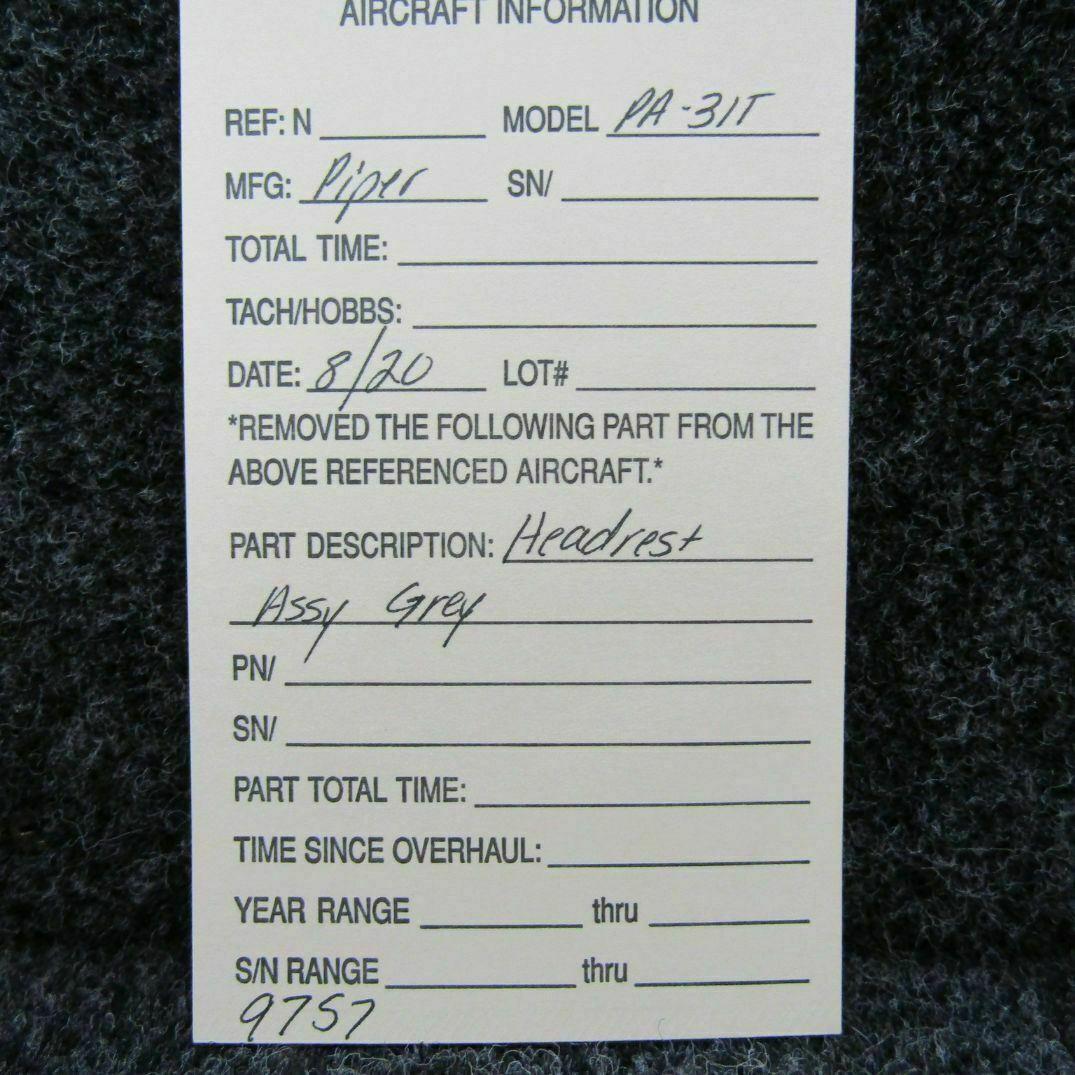 AIRCRAFT INFORMATION
REF: N ________ MODEL PA-31T
MFG: Piper SN/ ________
TOTAL TIME: ________
TACH/HOBBS: ________
DATE: 8/20 LOT# ________
*REMOVED THE FOLLOWING PART FROM THE
ABOVE REFERENCED AIRCRAFT.*
PART DESCRIPTION: Headrest
Assy Grey
PN/ ________
SN/ ________
PART TOTAL TIME: ________
TIME SINCE OVERHAUL: ________
YEAR RANGE ________ thru ________
S/N RANGE ________ thru ________
9757